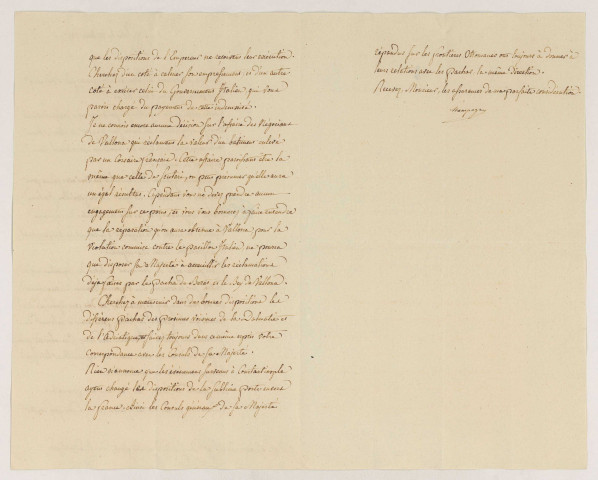 que les dispositions de l'Empereur ne reçoivent leur exécution.
Cherchez d'un coté à calmer son empressement, et d'un autre
coté à exciter celui du Gouvernement Italien qui vous
paroit chargé du payement de cette indemnité.
Je ne connois encore aucune décision sur l'affaire des Négocians
de Vallona qui réclament la valeur d'un bâtiment enlevé
par un Corsaire français. Cette affaire paroissant être la
même que celle de Scutari, on peut présumer qu'elle aura
un égal résultat. Cependant vous ne devez prendre aucun
engagement sur ce point, et vous vous bornerez à faire entendre
que la réparation qu'on aura obtenue à Vallona pour la
violation commise contre le pavillon Italien ne pourra
que disposer Sa Majesté à accueillir les réclamations
déjà faites par le Pacha de Berat et le Bey de Vallona.
Cherchez à maintenir dans des bonnes dispositions les
différens Pachas des provinces voisines de la Dalmatie et
de l'Adriatique, et suivez toujours dans ce même esprit votre
Correspondance avec les Consuls de Sa Majesté.
Rien n'annonce que les évènemens survenus à Constantinople
ayent changé les dispositions de la Sublime porte envers
la france. Ainsi les Consuls généraux de Sa Majesté
répandus sur les frontieres Ottomanes ont toujours à donner à
leurs relations avec les Pachas la même direction.
Recevez, Monsieur, les assurances de ma parfaite considération
Champagny